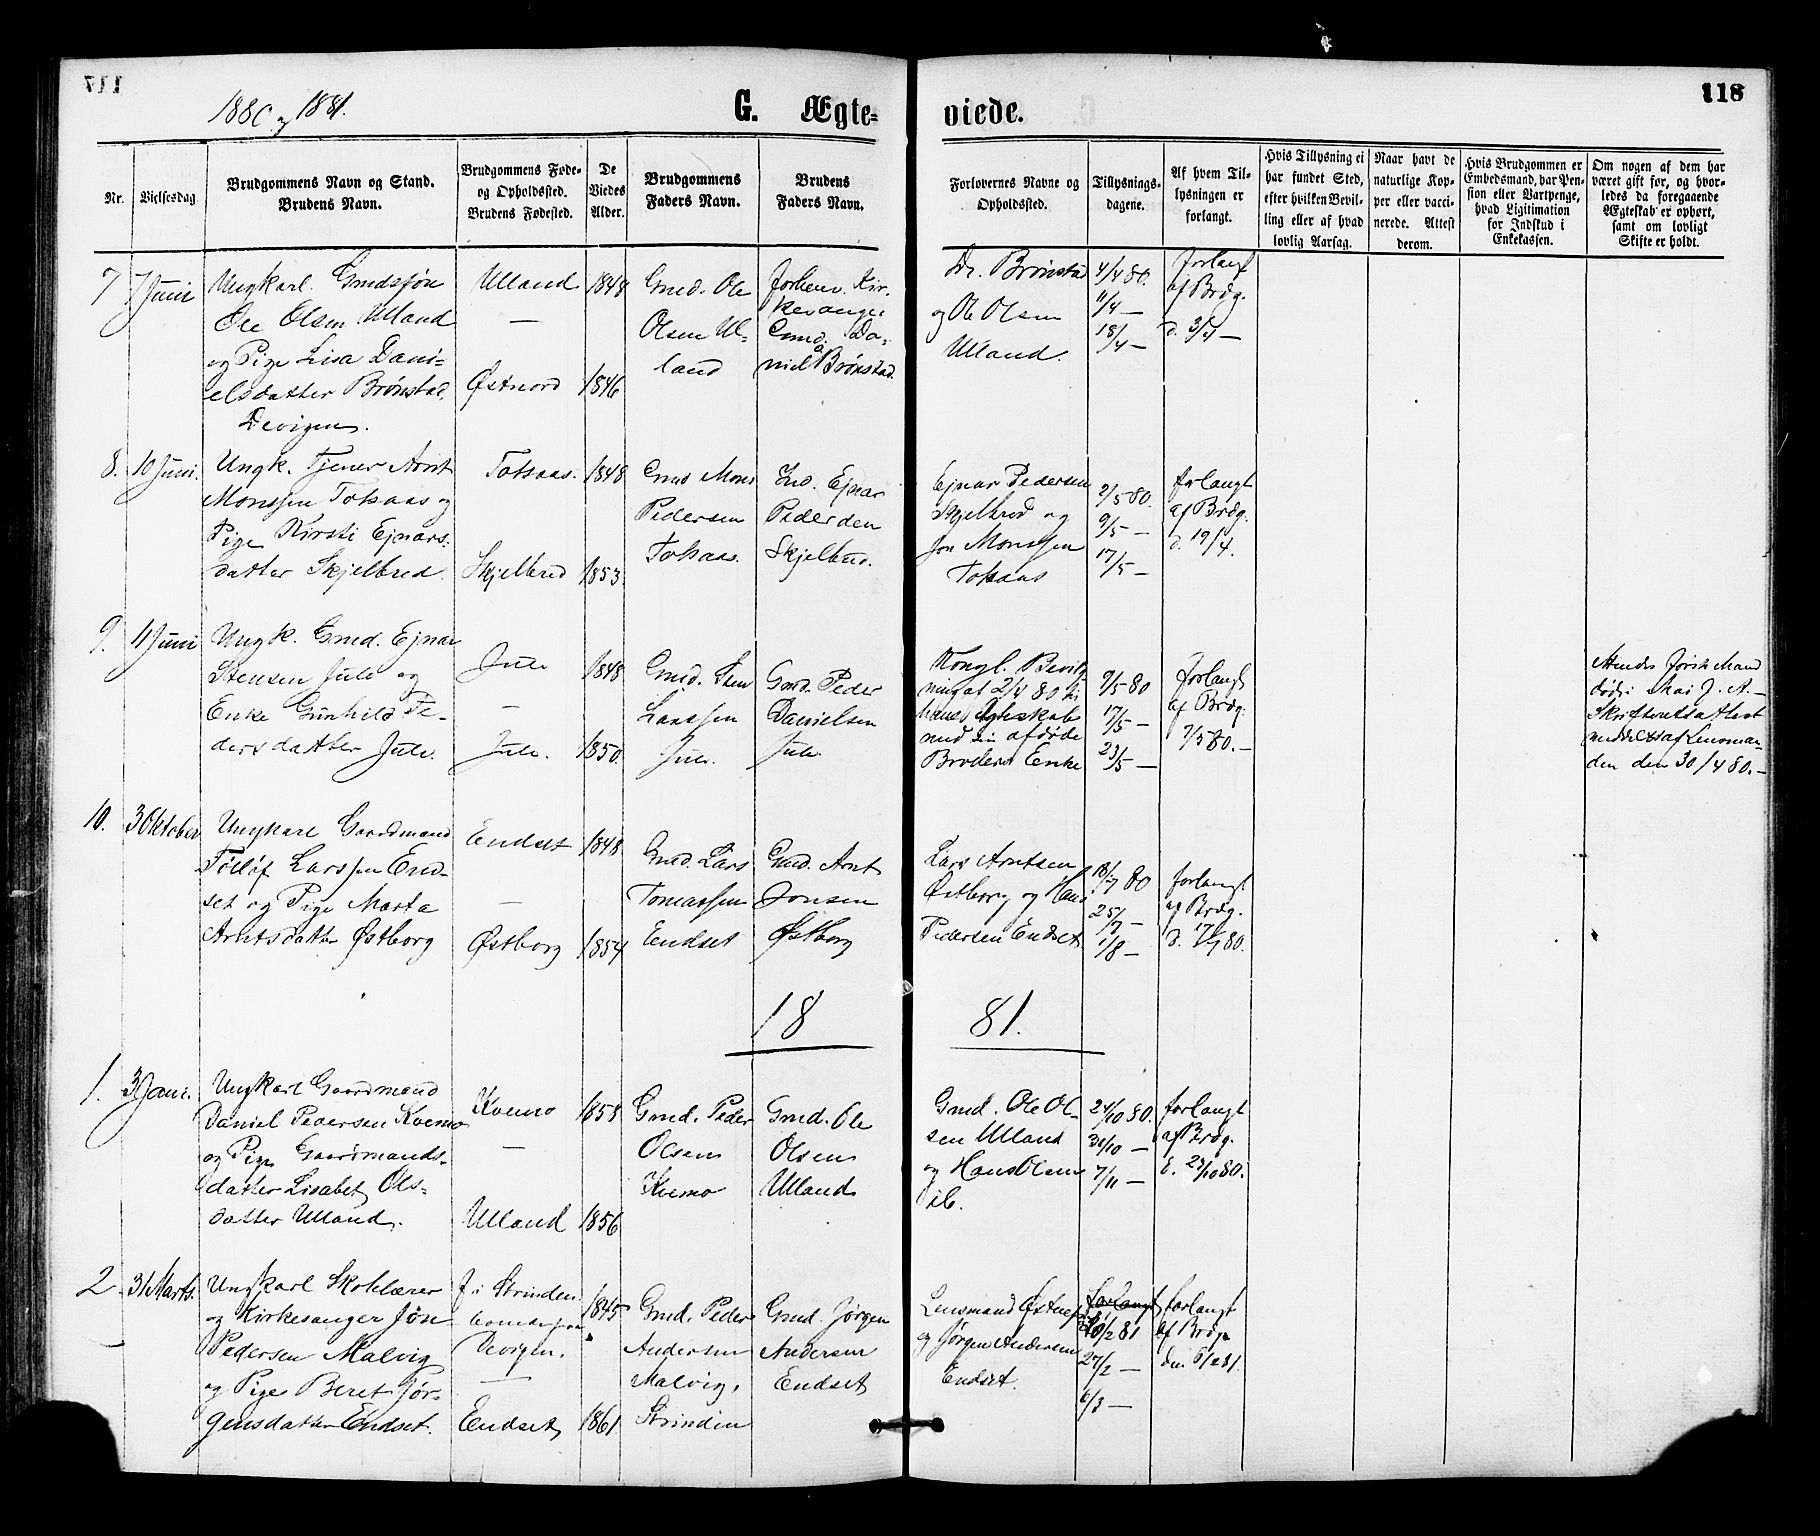 117
1880 og 1881.
G. Ægte-
viede.
118
Nr.
Vielsesdag.
Brudgommens Navn og Stand.
Brudens Navn.
Brudgommens Føde-
og Opholdssted.
Brudens Fødested.
De
Viedes
Alder.
Brudgommens
Faders Navn.
Brudens
Faders Navn.
Forlovernes Navne og
Opholdssted.
Tillysnings-
dagene.
Af hvem Til-
lysningen er
forlangt.
Hvis Tillysning ei
har fundet Sted,
efter hvilken Bevil-
ling eller af hvad
lovlig Aarsag.
Naar havt de
naturlige Kop-
per eller vacci-
nerede. Attest
derom.
Hvis Brudgommen er
Embedsmand, har Pen-
sion eller Vartpenge,
hvad Ligitimation
for Indskud i
Enkekassen.
Om nogen af dem har
været gift før, og hvor-
ledes da foregaaende
Ægteskab er ophørt,
samt om lovligt
Skifte er holdt.
7
7 Juni
Ungkarl. Gmdssøn
Ole Olsen Ulland
og Pige Lisa Dani-
elsdatter Brønstad,
Devigen.
Ulland
—
Østnord
1848
1846
Gmd. Ole
Olsen Ul-
land
forhenv. Kir-
kesanger
Gmd. Da-
niel Brønstad.
Dl. Brønstad
og Ole Olsen
Ulland.
4/4 80.
11/4 —
18/4 —
forlangt
af Brdg.
d. 3/4 —
8.
10 Juni.
Ungk. Tjener Arnt
Monssen Tokaas og
Pige Kirsti Ejnars-
datter Skjelbred.
Tokaas.
Skjelbred
1848
1853.
Gmd Mons
Pedersen
Tokaas.
Ind. Ejnar
Pedersen
Skjelbred.
Ejnar Pedersen
Skjelbred og
Jon Monssen
Tokaas
2/5 80.
9/5 —
17/5 —
forlangt
af Brdg.
d. 19/4.
9.
11 Juni
Ungk. Gmd. Ejnar
Stensen Jule og
Enke Gunhild Pe-
dersdatter Jule.
Jule
—
Jule.
1848
1850.
Gmd. Sten
Larssen
Jule.
Gmd. Peder
Danielsen
Jule.
Kongl. Bevilg-
ning af 2/4 80 til
hans Ægteskab
med sin afdøde
Broders Enke
9/5 80
17/5 —
23/5 —
forlangt
af Brdg.
7/5 80. —
Hendes første Mand
døde i Mai f. A. —
Skifteretsattest
meddelt af Lensman-
den den 30/4 80. —
10.
3 Oktober
Ungkarl Gaardmand
Tølløf Larssen End-
set og Pige Marta
Arntsdatter Østborg
Endset
—
Østborg
1848
1854
Gmd. Lars
Tomassen
Endset
Gmd. Arnt
Jonsen
Østborg
Lars Arntsen
Østborg og Hans
Pedersen Endset
18/7 80
25/7 —
1/8 —
forlangt
af Brdg.
d. 17/7 80.
18 81.
1.
3 Janr.
Ungkarl Gaardmand
Daniel Pedersen Kvemo
og Pige Gaardmands-
datter Lisabet Ols-
datter Ulland.
Kvemo
—
Ulland
1858
1856
Gmd. Peder
Olsen
Kvemo
Gmd. Ole
Olsen
Ulland
Gmd. Ole Ol-
sen Ulland
og Hans Olsen
ib.
24/10 80.
31/10 —
7/11 —
forlangt
af Brdg.
d. 23/10 80.
2
31 Marts.
Ungkarl Skolelærer
og Kirkesanger Jøn
Pedersen Malvig
og Pige Beret Jør-
gensdatter Endset.
f. i Strinden
boende paa
Devigen.
—
Endset
1845
1861
Gmd. Peder
Andersen
Malvig,
Strinden
Gmd. Jørgen
Andersen
Endset
Lensmand
og Jørgen Andersen
Endset.
forlangt
20/2 81
27/2 —
6/3 —
forlangt
af Brdg.
den 6/2 81.